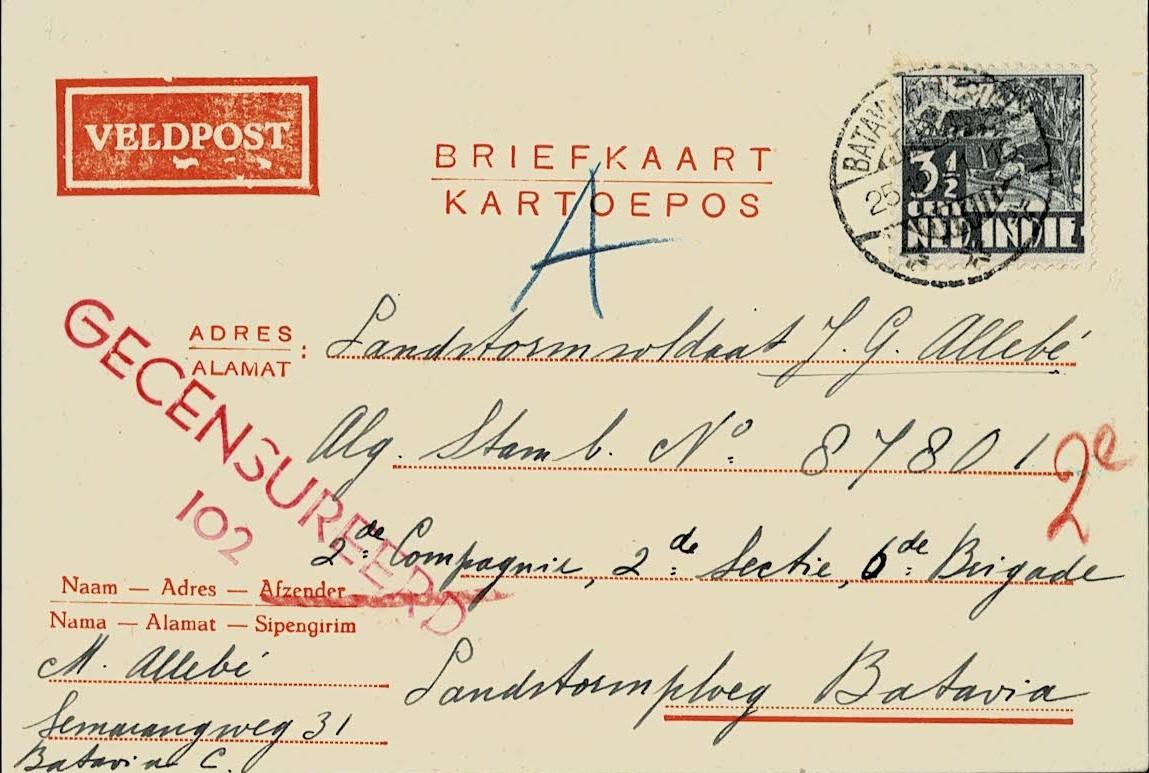 VELDPOST
BRIEFKAART
KARTOEPOS
A
3½
CENT
NED. INDIE
25
ADRES
ALAMAT :
Landstormsoldaat J. G. Allebé
Alg. Stamb. No: 87801
2e
GECENSUREERD
102
2de Compagnie, 2de Sectie, 6de Brigade
Landstormploeg Batavia
Naam — Adres — Afzender
Nama — Alamat — Sipengirim
M. Allebé
Semarangweg 31
Batavia C.